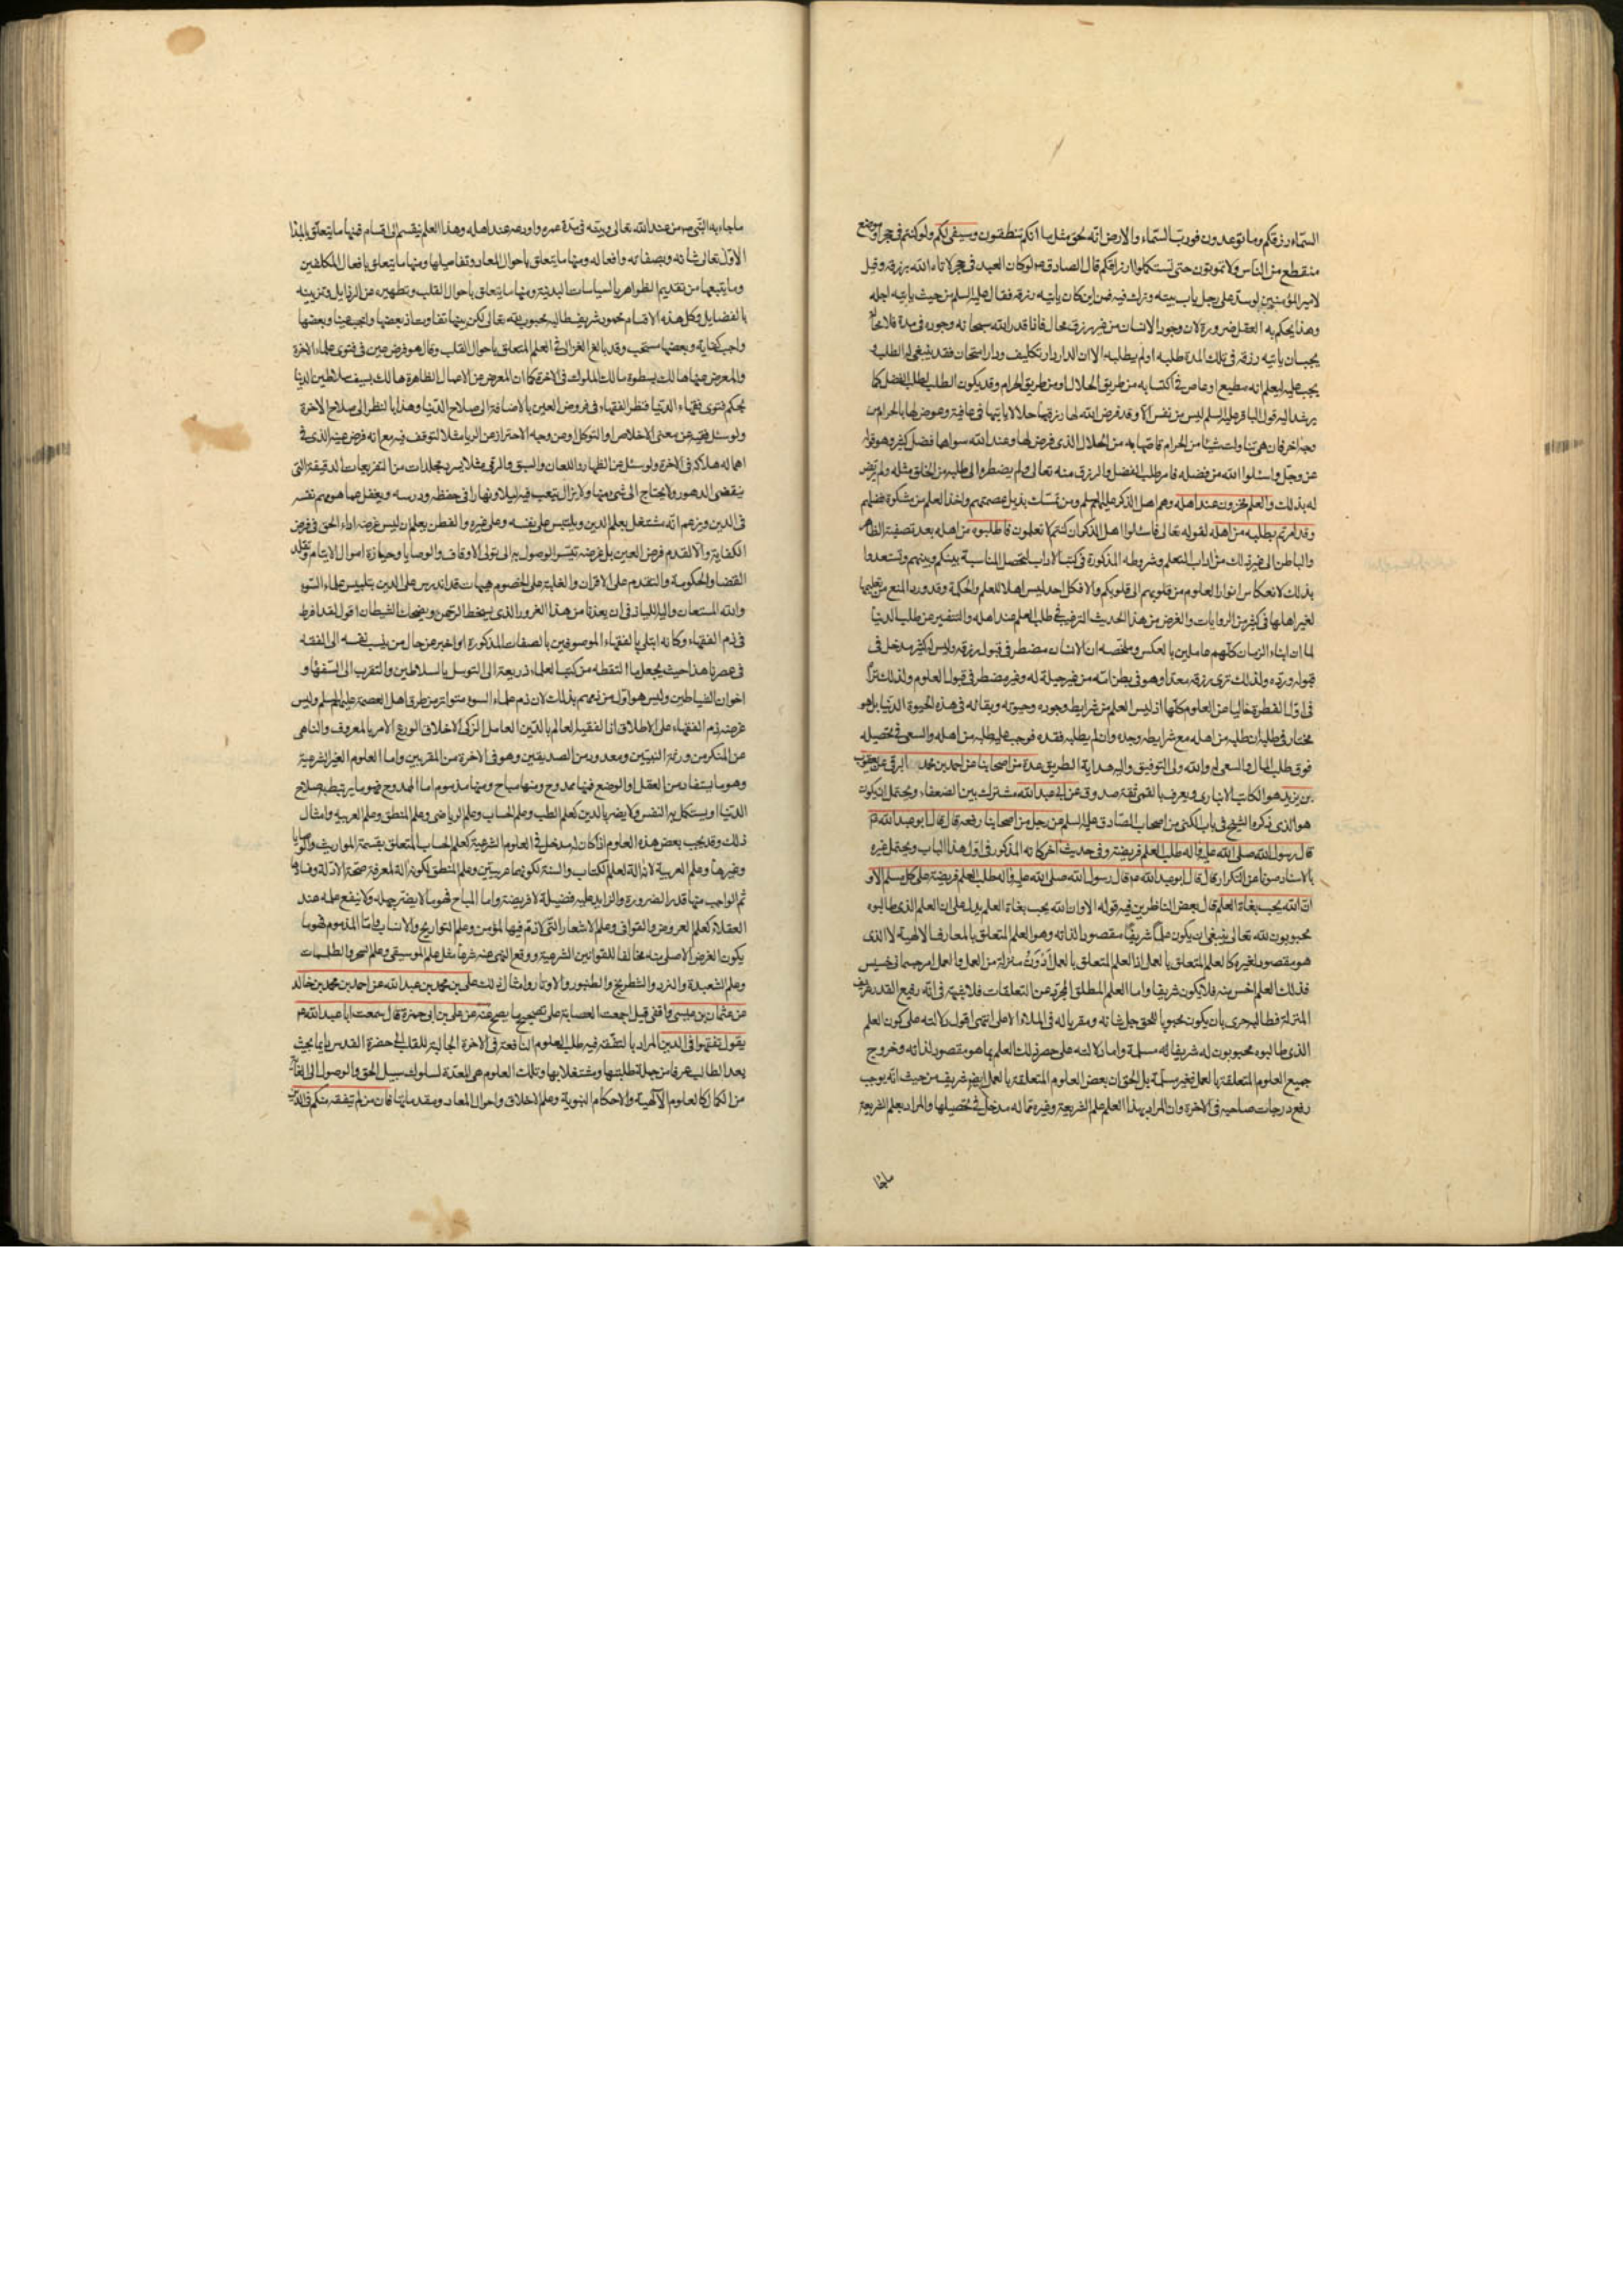 السماء رزقكم وما توعدون فورب السماء والارض انه لحق مثل ما انكم تنطقون وسيفى لكم ولو كنتم فى جحر او موضع
منقطع من الناس ولا تموتون حتى تستكملوا ارزاقكم قال الصادق ع لو كان العبد فى جحر لاتاه الله برزقه وقيل
لامير المؤمنين لو سد على رجل باب بيته وترك فيه من اين كان ياتيه رزقه فقال عليه السلم من حيث ياتيه اجله
وهذا يحكم به العقل ضرورة لان وجود الانسان من غير رزق محال فاذا قدر الله سبحانه وجوده فى مدة فلا محالة
يجب ان ياتيه رزقه فى تلك المدة طلبه او لم يطلبه الا ان الدار دار تكليف ودار امتحان فقد ينبغى له الطلب و
يجب عليه ليعلم انه مطيع او عاص فى اكتسابه من طريق الحلال او من طريق الحرام وقد يكون الطلب لطلب الفضل كما
يرشد اليه قول الباقر عليه السلم ليس من نفس الا وقد فرض الله لها رزقها حلالا ياتيها فى عافية وعرض لها بالحرام من
وجه اخر فان هى تناولت شيئا من الحرام قاصها به من الحلال الذى فرض لها وعند الله سواها فضل كثير وهو قوله
عز وجل واسئلوا الله من فضله فامر بطلب الفضل والرزق منه تعالى ولم يضطر والى طلبه من الخلق مثله ولم يرض
له بذلك والعلم مخزون عند اهله وهم اهل الذكر عليهم السلم ومن تمسك بذيل عصمتهم واخذ العلم من مشكوة فضلهم
وقد امرتم بطلبه من اهله لقوله تعالى فاسئلوا اهل الذكر ان كنتم لا تعلمون فاطلبوه من اهله بعد تصفية الظاهر
والباطن الى غير ذلك من اداب المتعلم وشروطه المذكورة فى كتب الاداب لتحصل المناسبة بينكم وبينهم وتستعدوا
بذلك لانعكاس انوار العلوم من قلوبهم الى قلوبكم والا فكل احد ليس اهلا للعلم والحكمة وقد ورد المنع من تعليمها
لغير اهلها فى كثير من الروايات والغرض من هذا الحديث الترغيب فى طلب العلم عند اهله والتنفير عن طلب الدنيا
لما ان ابناء الزمان كلهم عاملين بالعكس وملخصه ان الانسان مضطر فى قبول رزقه وليس له كثير مدخل فى
قبوله ورده ولذلك ترى رزقه معدا وهو فى بطن امه من غير حيلة له وغير مضطر فى قبول العلوم ولذلك تراه
فى اول الفطرة خاليا من العلوم كلها اذ ليس العلم من شرايط وجوده وحيوته وبقائه فى هذه الحيوة الدنيا بل هو
مختار فى طلبه ان طلبه من اهله مع شرايطه وجده وان لم يطلبه فقده فوجب عليه طلبه من اهله والسعى فى تحصيله
فوق طلب المال والسعى له والله ولى التوفيق واليه هداية الطريق عدة من اصحابنا عن احمد بن محمد البرقى عن يعقوب
بن يزيد هو الكاتب الانبارى ويعرف بالقمى ثقة صدوق عن ابى عبد الله مشترك بين الضعفاء ويحتمل ان يكون
هو الذى ذكره الشيخ فى باب الكنى من اصحاب الصادق عليه السلم عن رجل من اصحابنا رفعه قال قال ابو عبد الله ع
قال رسول الله صلى الله عليه واله طلب العلم فريضة وفى حديث اخر كانه المذكور فى اول هذا الباب ويحتمل غيره
بالاسناد صونا عن التكرار قال قال ابو عبد الله ع قال رسول الله صلى الله عليه واله طلب العلم فريضة على كل مسلم الا و
ان الله يحب بغاة العلم قال بعض الناظرين فيه قوله الا وان الله يحب بغاة العلم يدل على ان العلم الذى طالبوه
محبوبون لله تعالى ينبغى ان يكون علما شريفا مقصودا لذاته وهو العلم المتعلق بالمعارف الالهية لا الذى
هو مقصود لغيره كالعلم المتعلق بالعمل اذ العلم المتعلق بالعمل ادون منزلة من العمل والعمل امر جسمانى خسيس
فذلك العلم اخس منه فلا يكون شريفا واما العلم المطلق المجرد عن التعلقات فلا شبهة فى انه رفيع القدر شريف
المنزلة فطالبه حرى بان يكون محبوبا للحق جل شانه ومقربا له فى الملاء الاعلى انتهى اقول دلالته على كون العلم
الذى طالبوه محبوبون له شريفا له مسلمة واما دلالته على حصر ذلك العلم بما هو مقصود لذاته وخروج
جميع العلوم المتعلقة بالعمل فغير مسلمة بل الحق ان بعض العلوم المتعلقة بالعمل ايضا شريف من حيث انه يوجب
رفع درجات صاحبه فى الاخرة وان المراد بهذا العلم علم الشريعة وغيره مما له مدخل فى تحصيلها والمراد بعلم الشريعة
ما جاء به النبى ص من عند الله تعالى وبينه فى مدة عمره واودعه عند اهله وهذا العلم ينقسم الى اقسام فمنها ما يتعلق بالمبدا
الاول تعالى شانه وبصفاته وافعاله ومنها ما يتعلق باحوال المعاد وتفاصيلها ومنها ما يتعلق بافعال المكلفين
وما يتبعها من تقديم الظواهر بالسياسات البدنية ومنها ما يتعلق باحوال القلب وتطهيره عن الرذايل وتزيينه
بالفضايل وكل هذه الاقسام محمود شريف طالبه محبوب لله تعالى لكن بينها تفاوت اذ بعضها واجب عينا وبعضها
واجب كفاية وبعضها مستحب وقد بالغ الغزالى فى العلم المتعلق باحوال القلب وقال هو فرض عين فى فتوى علماء الاخرة
والمعرض عنها هالك بسطوة مالك الملوك فى الاخرة كما ان المعرض عن الاعمال الظاهرة هالك بسيف سلاطين الدنيا
بحكم فتوى فقهاء الدنيا فنظر الفقهاء فى فروض العين بالاضافة الى صلاح الدنيا وهذا بالنظر الى صلاح الاخرة
ولو سئل فقيه عن معنى الاخلاص او التوكل او عن وجه الاحتراز عن الريا مثلا لتوقف فيه مع انه فرض عينه الذى فى
اهماله هلاكه فى الاخرة ولو سئل عن الظهار واللعان والسبق والرمى مثلا يسرد مجلدات من التفريعات الدقيقة التى
ينقضى الدهور ولا يحتاج الى شىء منها ولا يزال يتعب فيه ليلا ونهارا فى حفظه ودرسه ويغفل عما هو مهم نفسه
فى الدين ويزعم انه مشتغل بعلم الدين ويلبس على نفسه وعلى غيره والفطن يعلم ان ليس غرضه اداء الحق فى فرض
الكفاية والا لقدم فرض العين بل غرضه تيسر الوصول به الى تولى الاوقاف والوصايا وحيازة اموال الايتام وتقلد
القضا والحكومة والتقدم على الاقران والغلبة على الخصوم هيهات قد اندرس علم الدين بتلبيس علماء السوء
والله المستعان واليه اللياذ فى ان يعيذنا من هذا الغرور الذى يسخط الرحمن ويضحك الشيطان اقول لقد افرط
فى ذم الفقهاء وكانه ابتلى بالفقهاء الموصوفين بالصفات المذكورة او اخبر عن حال من ينسب نفسه الى الفقه
فى عصرنا هذا حيث يجعل ما التقطه من كتب العلماء ذريعة الى التوسل بالسلاطين والتقرب الى السفهاء و
اخوان الشياطين وليس هو اول من ذمهم بذلك لان ذم علماء السوء متواتر من طرق اهل العصمة عليهم السلم وليس
غرضه ذم الفقهاء على الاطلاق اذ الفقيه العالم بالدين العامل الزكى الاخلاق الورع الامر بالمعروف والناهى
عن المنكر من ورثة النبيين ومعدود من الصديقين وهو فى الاخرة من المقربين واما العلوم الغير الشرعية
وهو ما يستفاد من العقل او الوضع فمنها ممدوح ومنها مباح ومنها مذموم اما الممدوح فهو ما يرتبط به صلاح
الدنيا او يستكمل به النفس ولا يضر بالدين كعلم الطب وعلم الحساب وعلم الرياضى وعلم المنطق وعلم العربية وامثال
ذلك وقد يجب بعض هذه العلوم اذا كان له مدخل فى العلوم الشرعية كعلم الحساب المتعلق بقسمة المواريث والوصايا
وغيرها وعلم العربية لانه الة لعلم الكتاب والسنة لكونهما عربيتين وعلم المنطق لكونه الة لمعرفة صحة الادلة وفسادها
ثم الواجب منها قدر الضرورة والزايد عليه فضيلة لا فريضة واما المباح فهو ما لا يضر جهله ولا ينفع علمه عند
العقلاء كعلم العروض والقوافى وعلم الاشعار التى لا ذم فيها لمؤمن وعلم التواريخ والانساب واما المذموم فهو ما
يكون الغرض الاصلى منه مخالفا للقوانين الشرعية ووقع النهى عنه شرعا مثل علم الموسيقى وعلم السحر والطلسمات
وعلم الشعبدة والنرد والشطرنج والطنبور والاوتار وامثال ذلك على بن محمد بن عبد الله عن احمد بن محمد بن خالد
عن عثمان بن عيسى واقفى قيل اجمعت العصابة على تصحيح ما يصح عنه عن على بن ابى حمزة قال سمعت ابا عبد الله ع
يقول تفقهوا فى الدين المراد بالتفقه فيه طلب العلوم النافعة فى الاخرة الجالبة للقلب الى حضرة القدس دايما بحيث
يعد الطالب عرفا من جملة طلبتها ومشتغلا بها وتلك العلوم هى المعدة لسلوك سبيل الحق والوصول الى الغاية
من الكمال كالعلوم الالهية والاحكام النبوية وعلم الاخلاق واحوال المعاد ومقدماتها فان من لم يتفقه منكم فى الدين